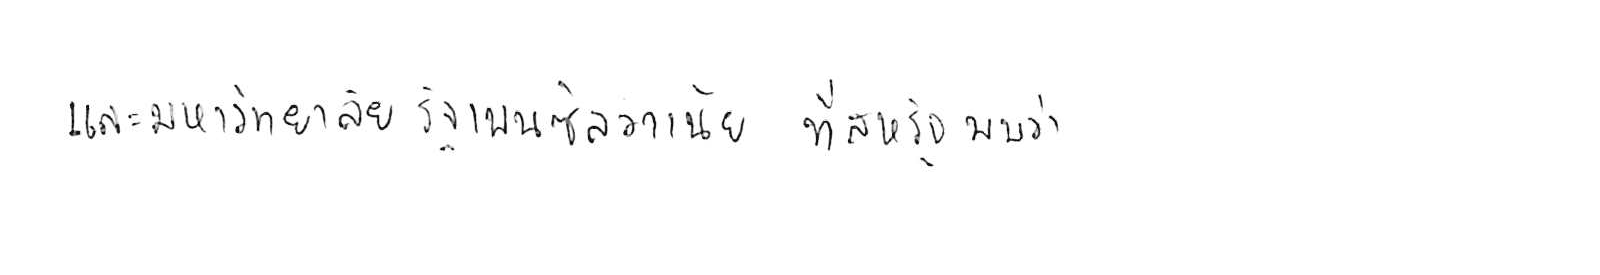 และมหาวิทยาลัย รัฐเพนซิลวาเนีย ที่สหรัฐ พบว่า